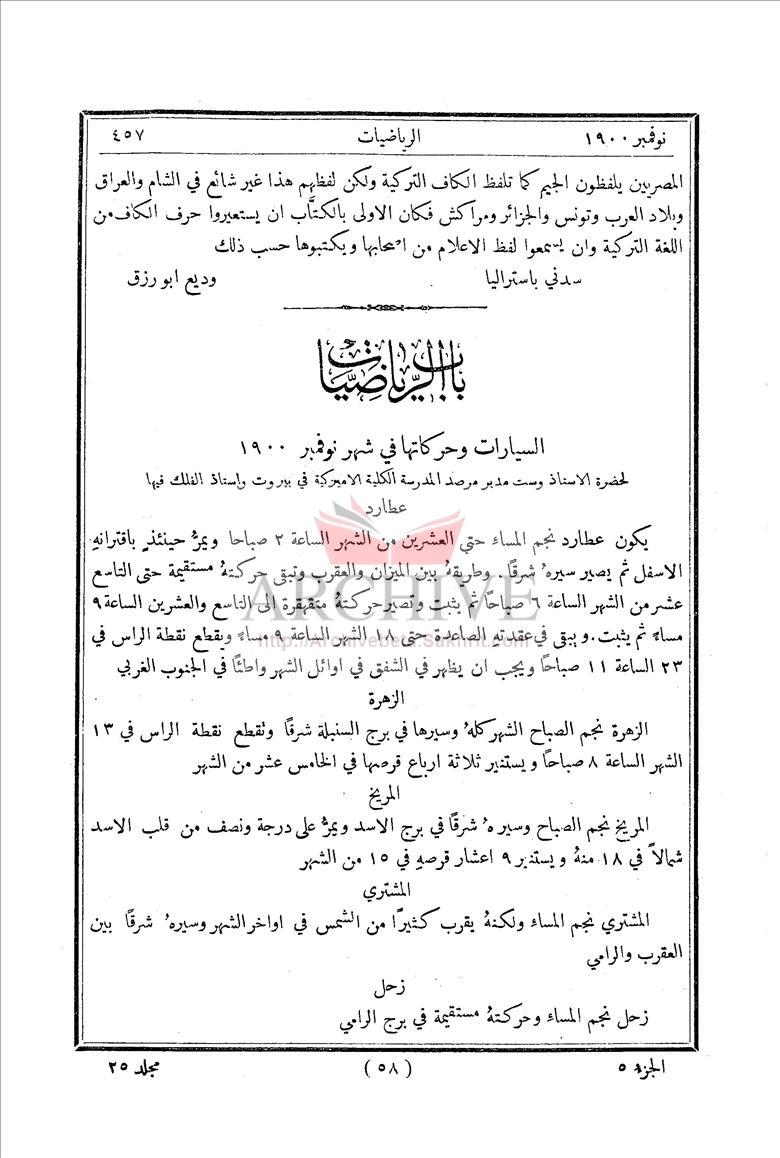 نوفمبر ١٩٠٠ الرياضيات ٤٥٧
المصربين يلفظون الجيم كما تلفظ الكاف التركية ولكن لفظهم هذا غير شائع في الشام والعراق
وبلاد العرب وتونس والجزائر ومراكش فكان الاولى بالكتَّاب ان يستعيروا حرف الكاف من
اللغة التركية وان يسمعوا لفظ الاعلام من اصحابها ويكتبوها حسب ذلك
سدني باستراليا وديع ابو رزق
باب الرياضيات
السيارات وحركاتها في شهر نوفمبر ١٩٠٠
لحضرة الاستاذ وست مدير مرصد المدرسة الكلية الاميركية في بيروت واستاذ الفلك فيها
عطارد
يكون عطارد نجم المساء حتى العشرين من الشهر الساعة ٢ صباحا ويمرُّ حينئذٍ باقترانهِ
الاسفل ثم يصير سيرهُ شرقًا. وطريقهُ بين الميزان والعقرب وتبقى حركتهُ مستقيمة حتى التاسع
عشر من الشهر الساعة ٦ صباحًا ثم يثبت وتصير حركتهُ متقهقرة الى التاسع والعشرين الساعة ٩
مساءً ثم يثبت. ويبقى في عقدته الصاعدة حتى ١٨ الشهر الساعة ٩ مساءً ويقطع نقطة الراس في
٢٣ الساعة ١١ صباحًا ويجب ان يظهر في الشفق في اوائل الشهر واطئًا في الجنوب الغربي
الزهرة
الزهرة نجم الصباح الشهر كلهُ وسيرها في برج السنبلة شرقًا وتقطع نقطة الراس في ١٣
الشهر الساعة ٨ صباحًا ويستنير ثلاثة ارباع قرصها في الخامس عشر من الشهر
المريخ
المريخ نجم الصباح وسيرهُ شرقًا في برج الاسد ويمرُّ على درجة ونصف من قلب الاسد
شمالاً في ١٨ منهُ ويستنير ٩ اعشار قرصهِ في ١٥ من الشهر
المشتري
المشتري نجم المساء ولكنهُ يقرب كثيرًا من الشمس في اواخر الشهر وسيرهُ شرقًا بين
العقرب والرامي
زحل
زحل نجم المساء وحركتهُ مستقيمة في برج الرامي
الجزء ٥ (٥٨) مجلد ٢٥
ARCHIVE
http://Archivebeta.Sakhrit.com